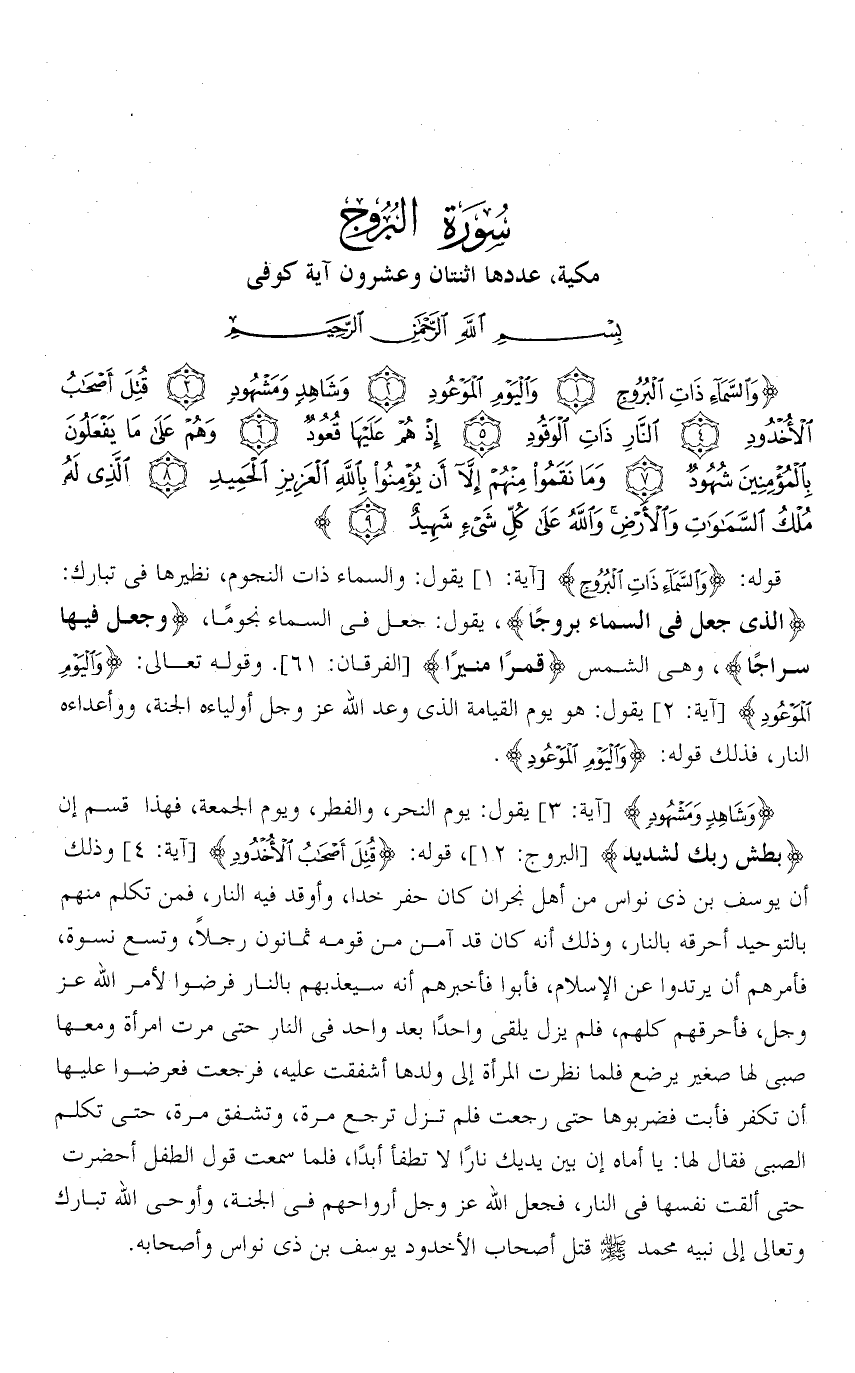 سُورَة البُرُوج
مكية، عددها اثنتان وعشرون آية كوفى
بِسْمِ اللَّهِ الرَّحْمَٰنِ الرَّحِيمِ
﴿وَٱلسَّمَآءِ ذَاتِ ٱلْبُرُوجِ ١ وَٱلْيَوْمِ ٱلْمَوْعُودِ ٢ وَشَاهِدٍ وَمَشْهُودٍ ٣ قُتِلَ أَصْحَٰبُ
ٱلْأُخْدُودِ ٤ ٱلنَّارِ ذَاتِ ٱلْوَقُودِ ٥ إِذْ هُمْ عَلَيْهَا قُعُودٌ ٦ وَهُمْ عَلَىٰ مَا يَفْعَلُونَ
بِٱلْمُؤْمِنِينَ شُهُودٌ ٧ وَمَا نَقَمُوا۟ مِنْهُمْ إِلَّآ أَن يُؤْمِنُوا۟ بِٱللَّهِ ٱلْعَزِيزِ ٱلْحَمِيدِ ٨ ٱلَّذِى لَهُۥ
مُلْكُ ٱلسَّمَٰوَٰتِ وَٱلْأَرْضِ ۚ وَٱللَّهُ عَلَىٰ كُلِّ شَىْءٍ شَهِيدٌ ٩ ﴾
قوله: ﴿وَٱلسَّمَآءِ ذَاتِ ٱلْبُرُوجِ﴾ [آية: ١] يقول: والسماء ذات النجوم، نظيرها فى تبارك:
﴿الذى جعل فى السماء بروجًا﴾، يقول: جعل فى السماء نجومًا، ﴿وجعل فيها
سراجًا﴾، وهى الشمس ﴿قمرًا منيرًا﴾ [الفرقان: ٦١]. وقوله تعالى: ﴿وَٱلْيَوْمِ
ٱلْمَوْعُودِ﴾ [آية: ٢] يقول: هو يوم القيامة الذى وعد الله عز وجل أولياءه الجنة، ووأعداءه
النار، فذلك قوله: ﴿وَٱلْيَوْمِ ٱلْمَوْعُودِ﴾.
﴿وَشَاهِدٍ وَمَشْهُودٍ﴾ [آية: ٣] يقول: يوم النحر، والفطر، ويوم الجمعة، فهذا قسم إن
﴿بطش ربك لشديد﴾ [البروج: ١٢]، قوله: ﴿قُتِلَ أَصْحَٰبُ ٱلْأُخْدُودِ﴾ [آية: ٤] وذلك
أن يوسف بن ذى نواس من أهل نجران كان حفر خدا، وأوقد فيه النار، فمن تكلم منهم
بالتوحيد أحرقه بالنار، وذلك أنه كان قد آمن من قومه ثمانون رجلاً، وتسع نسوة،
فأمرهم أن يرتدوا عن الإسلام، فأبوا فأخبرهم أنه سيعذبهم بالنار فرضوا لأمر الله عز
وجل، فأحرقهم كلهم، فلم يزل يلقى واحدًا بعد واحد فى النار حتى مرت امرأة ومعها
صبى لها صغير يرضع فلما نظرت المرأة إلى ولدها أشفقت عليه، فرجعت فعرضوا عليها
أن تكفر فأبت فضربوها حتى رجعت فلم تزل ترجع مرة، وتشفق مرة، حتى تكلم
الصبى فقال لها: يا أماه إن بين يديك نارًا لا تطفأ أبدًا، فلما سمعت قول الطفل أحضرت
حتى ألقت نفسها فى النار، فجعل الله عز وجل أرواحهم فى الجنة، وأوحى الله تبارك
وتعالى إلى نبيه محمد ﷺ قتل أصحاب الأخدود يوسف بن ذى نواس وأصحابه.